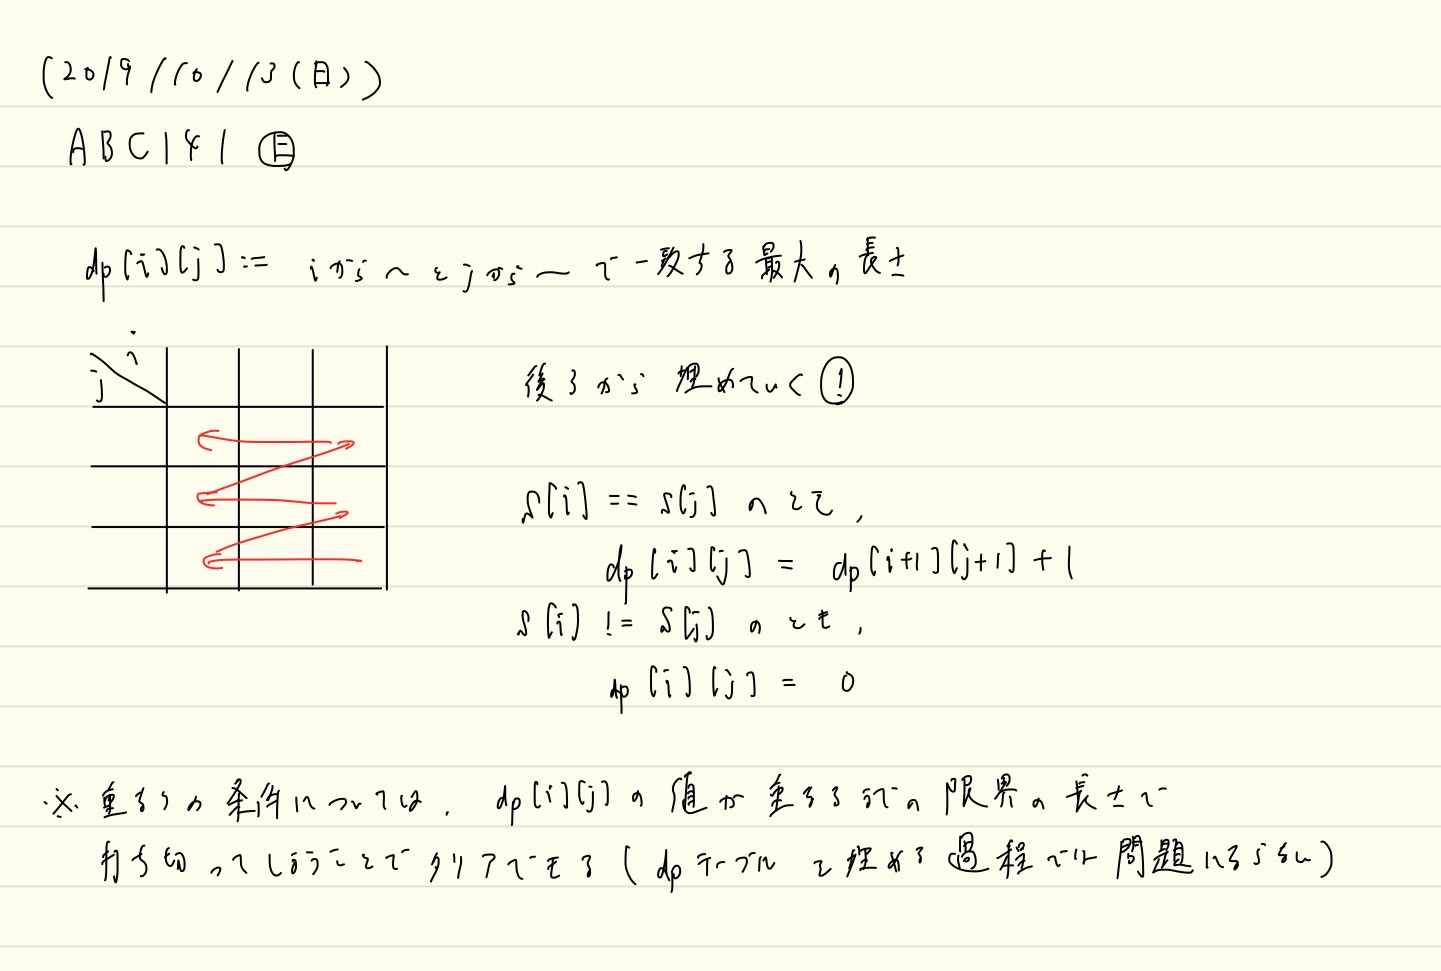 (2019/10/13(日))
ABC141 Ⓔ
dp[i][j] := iから〜とjから〜で一致する最大の長さ
i
j
後ろから埋めていく!
S[i] == S[j] のとき,
dp[i][j] = dp[i+1][j+1] + 1
S[i] != S[j] のとき,
dp[i][j] = 0
※ 重なりの条件については, dp[i][j]の値が重なるまでの限界の長さで
打ち切ってしまうことでクリアできる(dpテーブルを埋める過程では問題にならない)